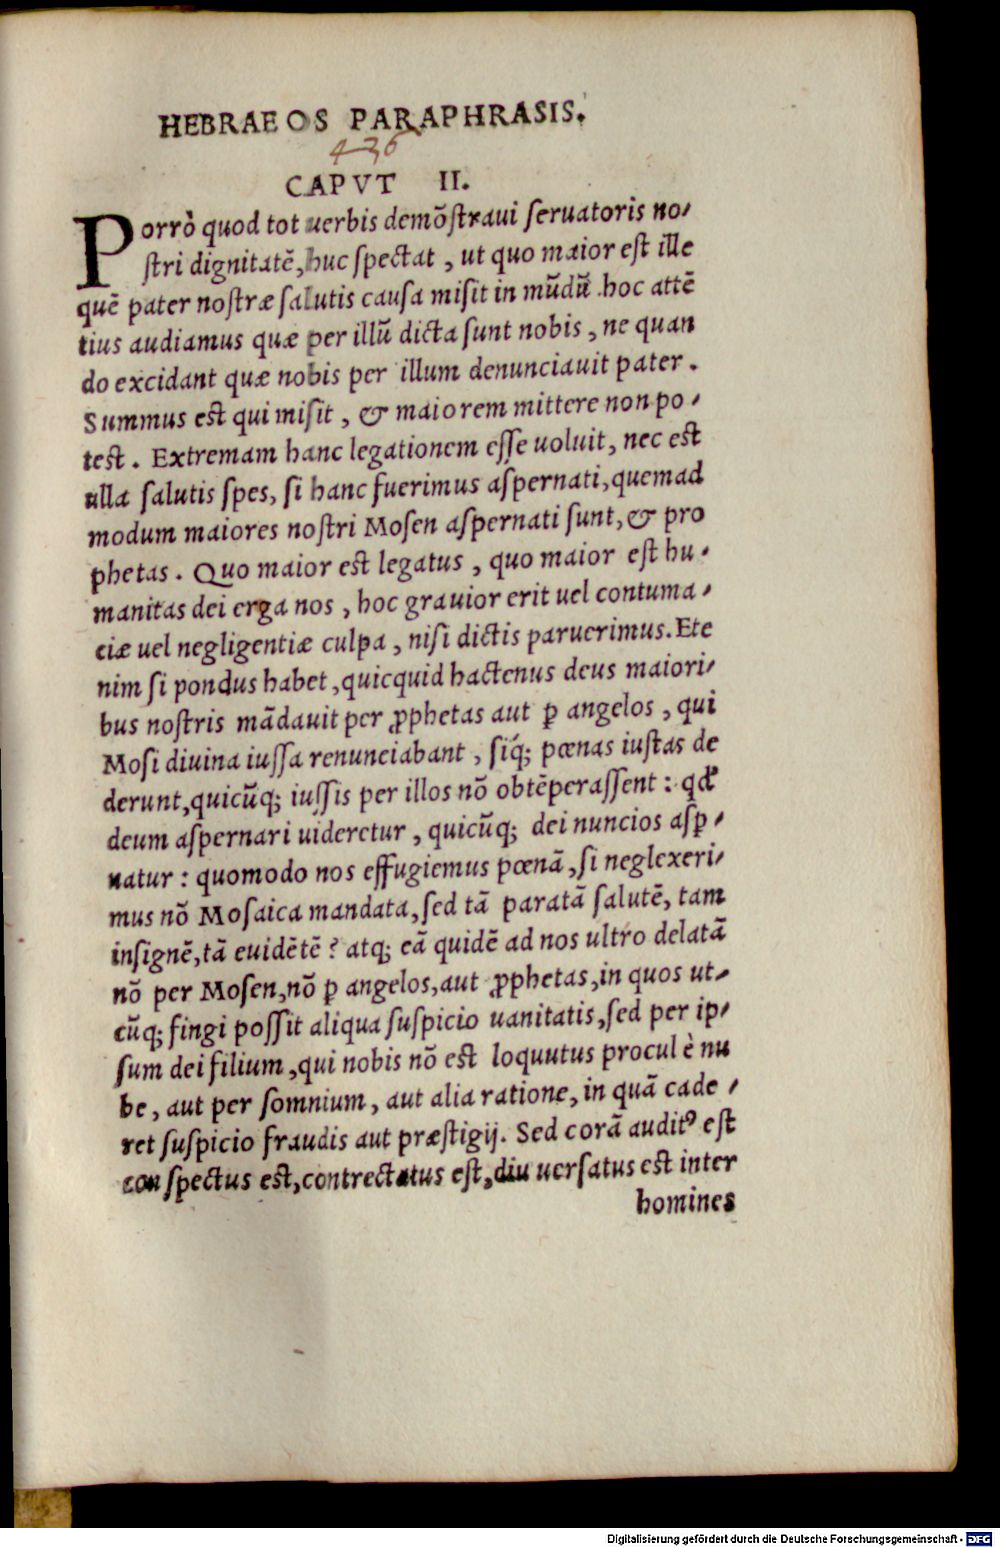 HEBRAEOS PARAPHRASIS.
436
CAPVT II.
Porrò quod tot uerbis demõstraui seruatoris no-
stri dignitatẽ, huc spectat, ut quo maior est ille
quẽ pater nostræ salutis causa misit in mũdũ hoc attẽ
tius audiamus quæ per illũ dicta sunt nobis, ne quan
do excidant quæ nobis per illum denunciauit pater.
Summus est qui misit, & maiorem mittere non po-
test. Extremam hanc legationem esse uoluit, nec est
ulla salutis spes, si hanc fuerimus aspernati, quemad
modum maiores nostri Mosen aspernati sunt, & pro
phetas. Quo maior est legatus, quo maior est hu-
manitas dei erga nos, hoc grauior erit uel contuma-
ciæ uel negligentiæ culpa, nisi dictis paruerimus. Ete
nim si pondus habet, quicquid hactenus deus maiori-
bus nostris mãdauit per ꝓphetas aut ꝑ angelos, qui
Mosi diuina iussa renunciabant, siq́; pœnas iustas de
derunt, quicũq; iussis per illos nõ obtẽperassent: qđ
deum aspernari uideretur, quicũq; dei nuncios asꝑ-
natur: quomodo nos effugiemus pœnã, si neglexeri-
mus nõ Mosaica mandata, sed tã paratã salutẽ, tam
insignẽ, tã euidẽtẽ? atq; eã quidẽ ad nos ultro delatã
nõ per Mosen, nõ ꝑ angelos, aut ꝓphetas, in quos ut-
cũq; fingi possit aliqua suspicio uanitatis, sed per ip-
sum dei filium, qui nobis nõ est loquutus procul è nu
be, aut per somnium, aut alia ratione, in quã cade-
ret suspicio fraudis aut præstigij. Sed corã auditꝰ est
conspectus est, contrectatus est, diu uersatus est inter
homines
Digitalisierung gefördert durch die Deutsche Forschungsgemeinschaft - DFG